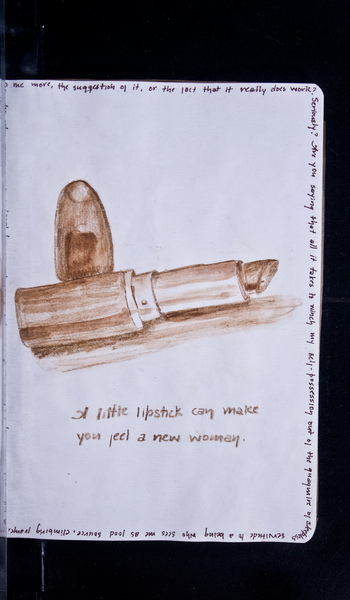 me more, the suggestion of it, or the fact that it really does work?
Seriously? Are you saying that all it takes to winch my self-possession out of the quagmire of
servitude to a being who sees me as food source, climbing frame,
A little lipstick can make
you feel a new woman.